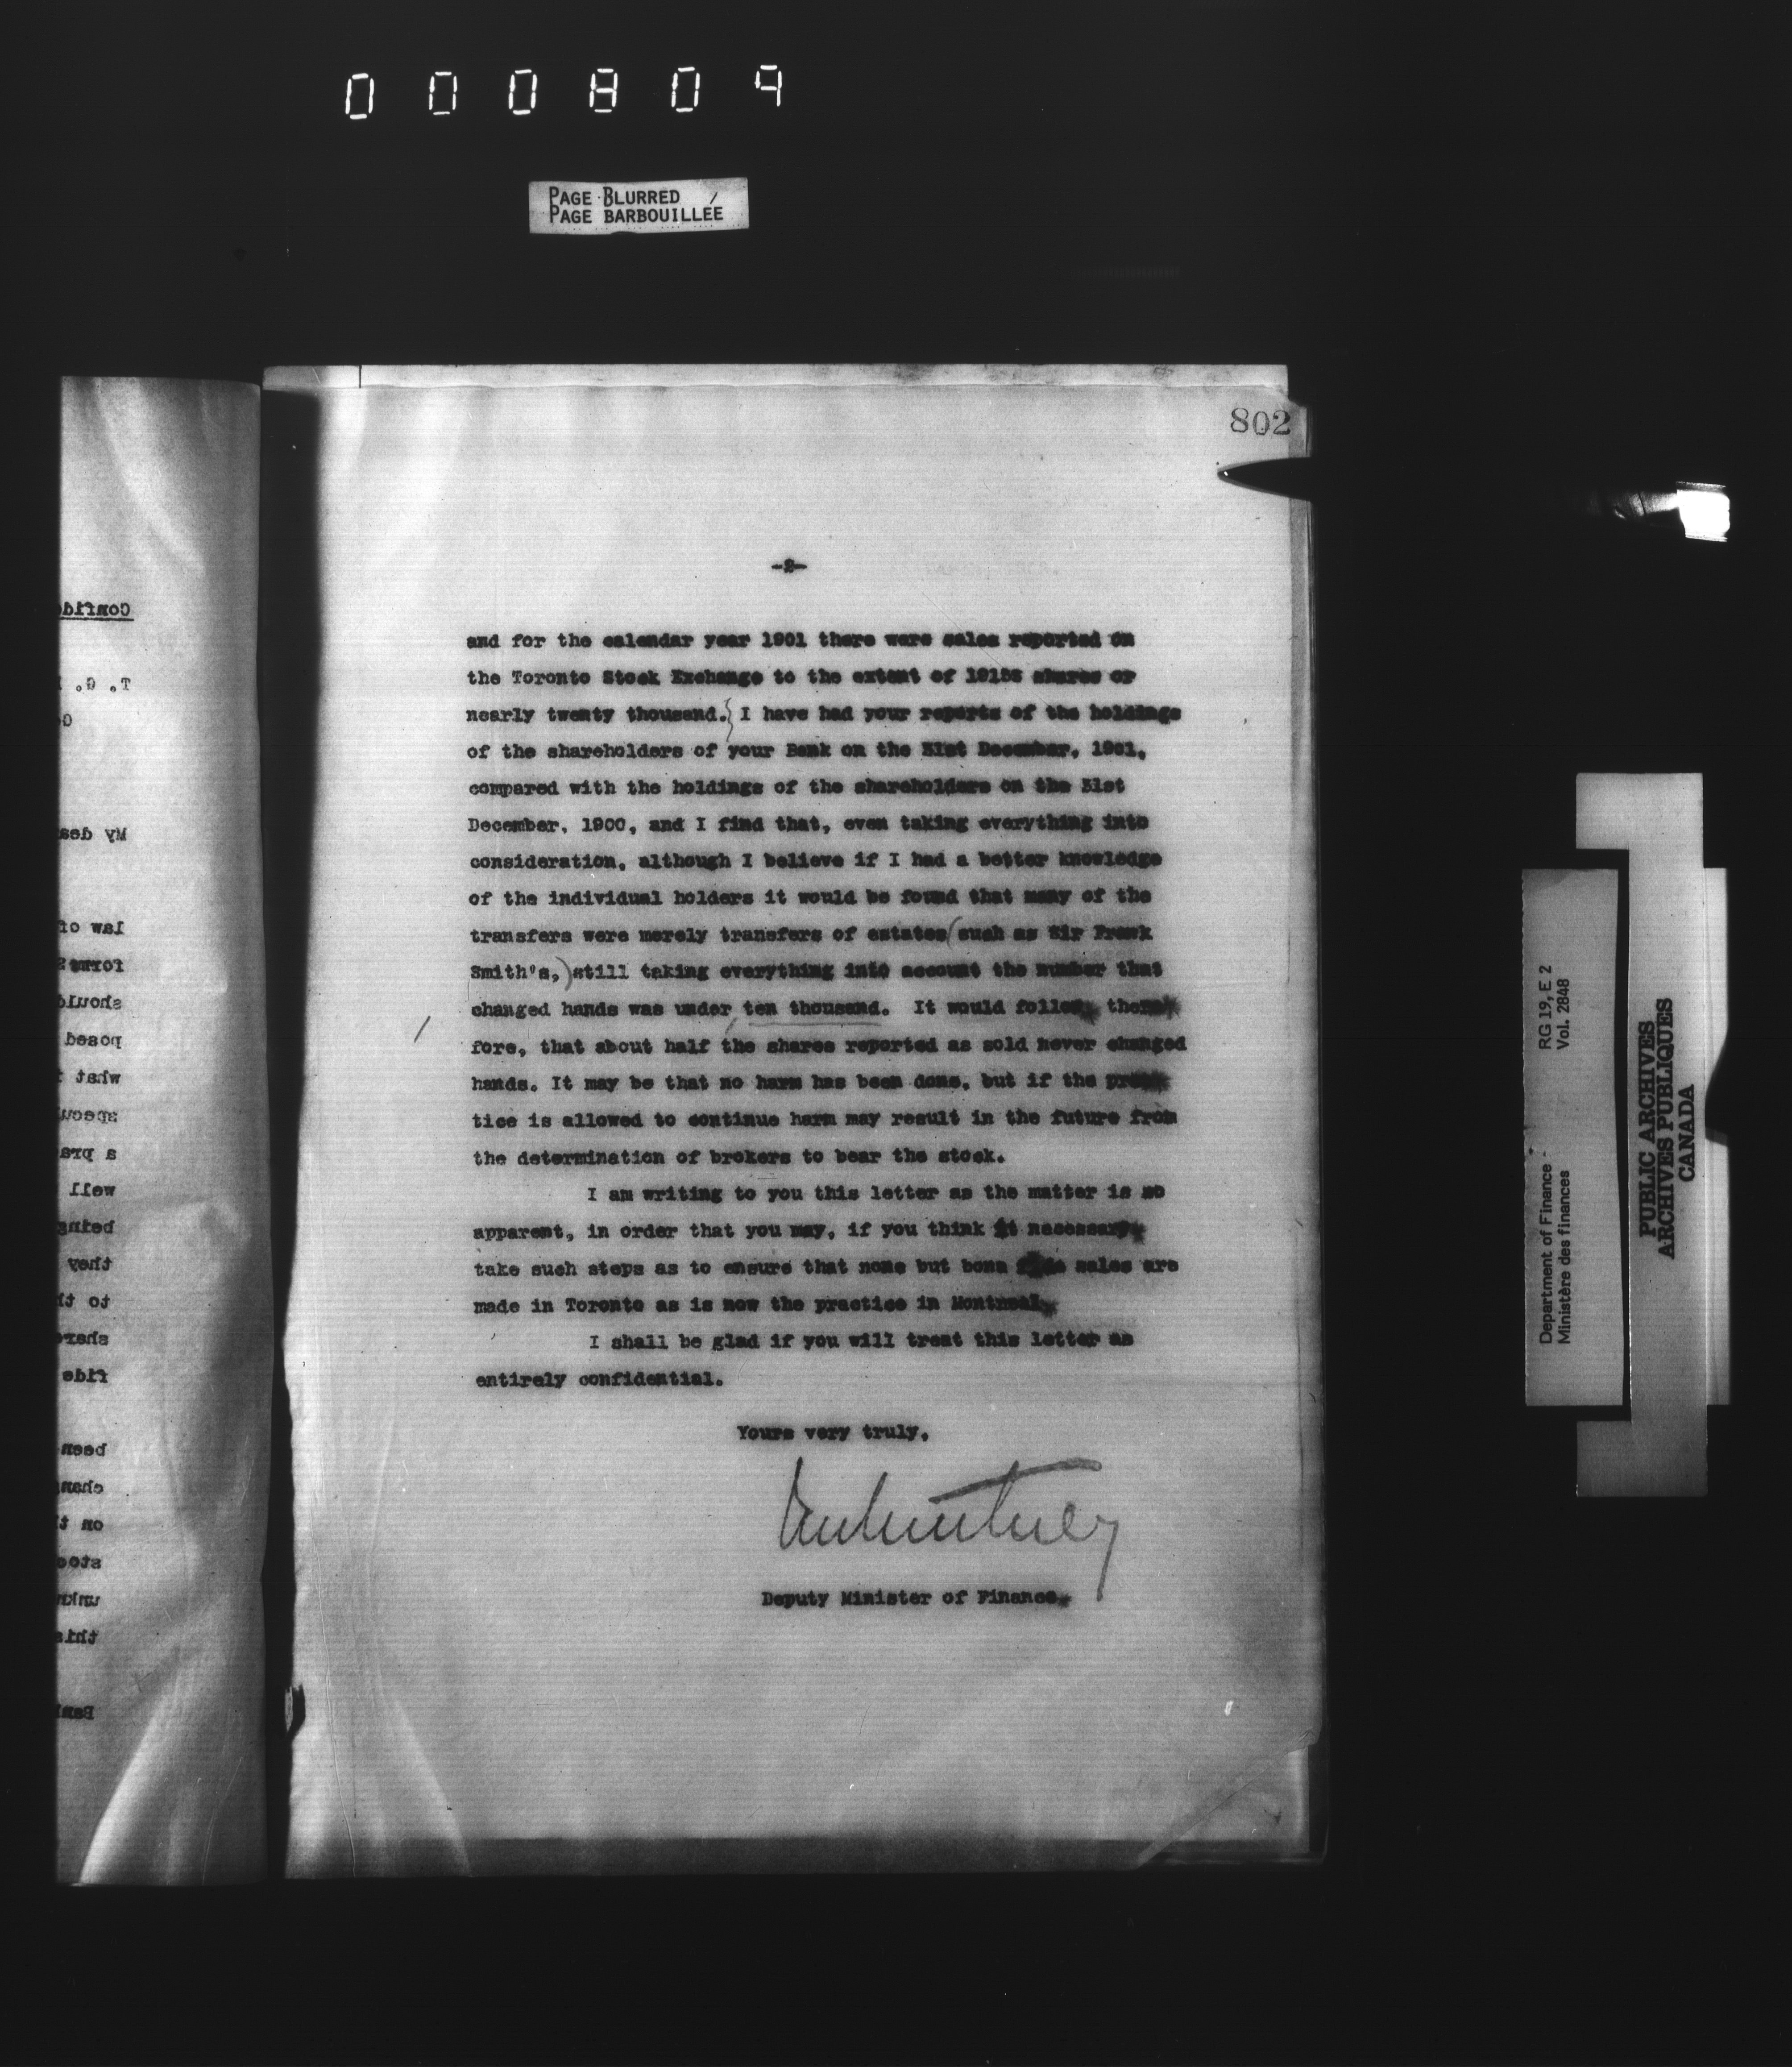 000809
PAGE BLURRED /
PAGE BARBOUILLÉE
802
-2-
and for the calendar year 1901 there were sales reported on
the Toronto Stock Exchange to the extent of shares or
nearly twenty thousand. I have had your reports of the holdings
of the shareholders of your Bank on the 31st December, 1901,
compared with the holdings of the shareholders on the 31st
December, 1900, and I find that, even taking everything into
consideration, although I believe if I had a better knowledge
of the individual holders it would be found that many of the
transfers were merely transfers of estates (such as Sir Frank
Smith's,) still taking everything into account the number that
changed hands was under ten thousand. It would follow, there-
fore, that about half the shares reported as sold never changed
hands. It may be that no harm has been done, but if the prac-
tice is allowed to continue harm may result in the future from
the determination of brokers to bear the stock.
I am writing to you this letter as the matter is so
apparent, in order that you may, if you think it necessary,
take such steps as to ensure that none but bona fide sales are
made in Toronto as is now the practice in Montreal.
I shall be glad if you will treat this letter as
entirely confidential.
Yours very truly,
Deputy Minister of Finance.
Confide
T. G.
My dear
law of
forms
should
posed
what
specu
a pra
well
being
they
to th
share
fide
been
chan
on t
stoc
unkn
this
Bank
Department of Finance
Ministère des finances
RG 19, E 2
Vol. 2848
PUBLIC ARCHIVES
ARCHIVES PUBLIQUES
CANADA